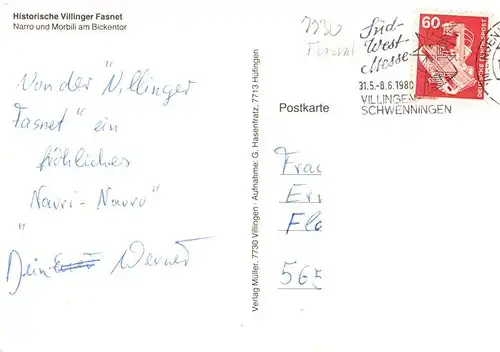 Historische Villinger Fasnet
Narro und Morbili am Bickentor
Von der "Villinger
Fasnet" ein
fröhliches
Narri-Narro
"
Dein Werner
Verlag Müller, 7730 Villingen · Aufnahme: G. Hasenfratz, 7713 Hüfingen
Postkarte
7730
Süd-
West-
Messe
31.5.-8.6.1980
VILLINGEN-
SCHWENNINGEN
60
DEUTSCHE BUNDESPOST
Frau
Er
Fl
565